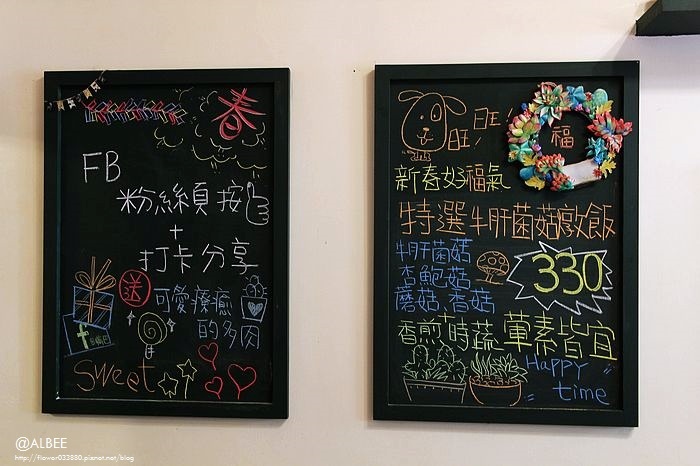 春
FB
粉絲頁按
+
打卡分享
送
可愛療癒
的多肉
f
Sweet
旺!
旺!
福
新春好福氣
特選牛肝菌菇燉飯
牛肝菌菇
杏鮑菇
蘑菇、香菇
330
香煎時蔬 葷素皆宜
Happy
time
@ALBEE
http://flower033880.pixnet.net/blog